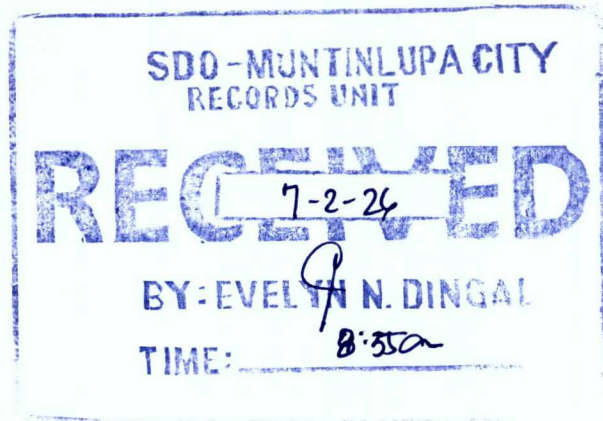 SDO-MUNTINLUPA CITY
RECORDS UNIT
RECEIVED
7-2-26
BY: EVELYN N. DINGAL
TIME: 8:35am